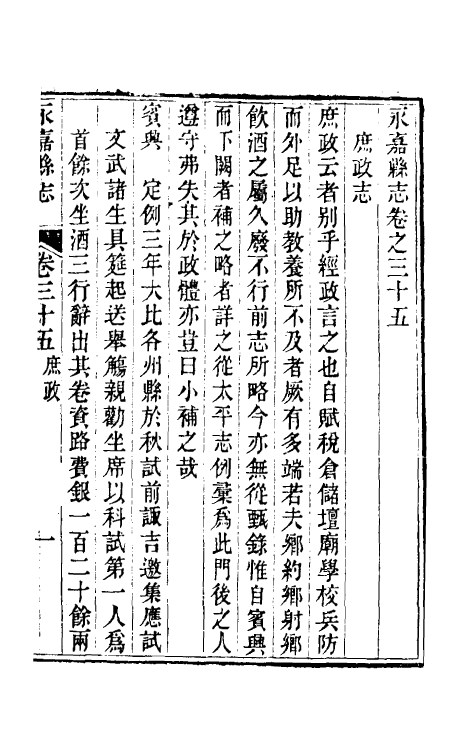 永嘉縣志卷之三十五
庶政志
庶政云者別乎經政言之也自賦稅倉儲壇廟學校兵防
而外足以助教養所不及者厥有多端若夫鄉約鄉射鄉
飲酒之屬久廢不行前志所略今亦無從甄錄惟自賓興
而下闕者補之略者詳之從太平志例彙爲此門後之人
遵守弗失其於政體亦豈曰小補之哉
賓興　定例三年大比各州縣於秋試前諏吉邀集應試
文武諸生具筵起送舉觴親勸坐席以科試第一人爲
首餘次坐酒三行辭出其卷資路費銀一百二十餘兩
永嘉縣志　卷三十五　庶政　一